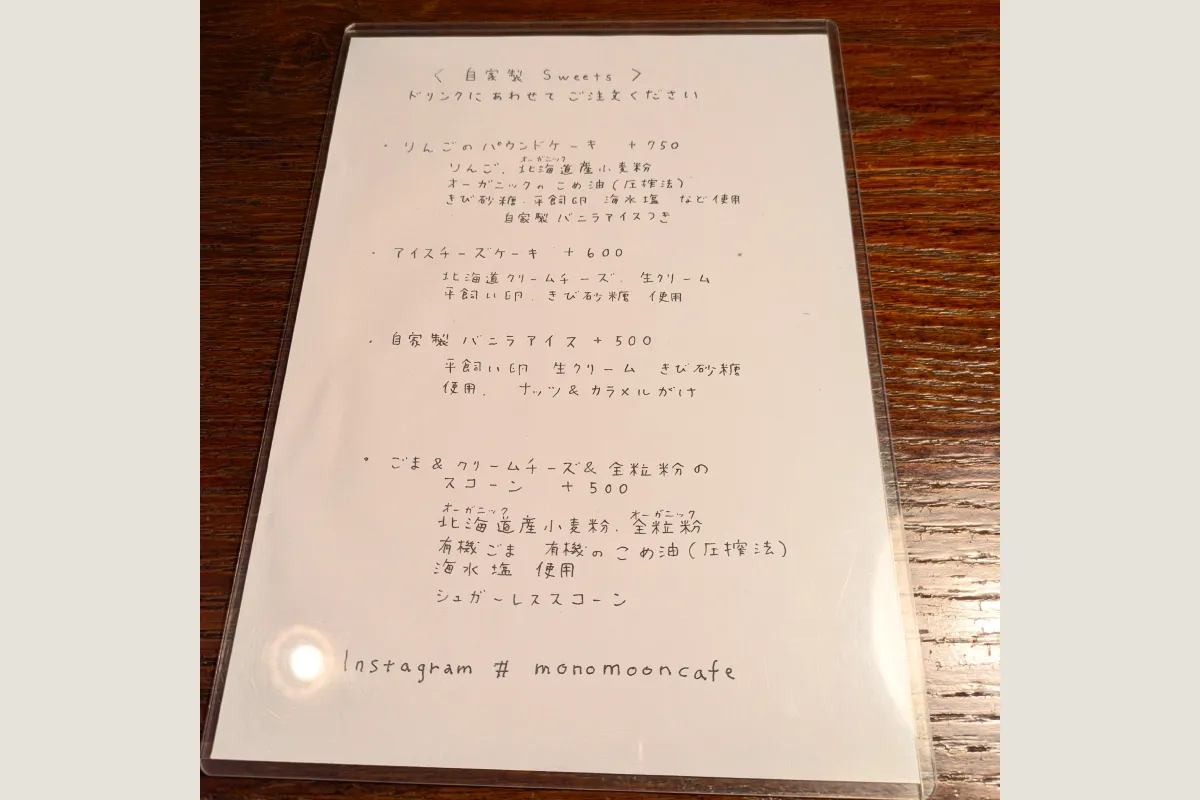 〈 自家製 Sweets 〉
ドリンクにあわせて ご注文ください
・りんごのパウンドケーキ +750
オーガニック
りんご、北海道産小麦粉
オーガニックの こめ油(圧搾法)
きび砂糖、平飼卵 海水塩 など使用
自家製バニラアイスつき
・アイスチーズケーキ +600
北海道クリームチーズ、生クリーム
平飼い卵、きび砂糖 使用
・自家製バニラアイス +500
平飼い卵 生クリーム きび砂糖
使用、 ナッツ&カラメルがけ
・ごま&クリームチーズ&全粒粉の
スコーン +500
オーガニック オーガニック
北海道産小麦粉、全粒粉
有機ごま 有機のこめ油(圧搾法)
海水塩 使用
シュガーレススコーン
Instagram # monomooncafe